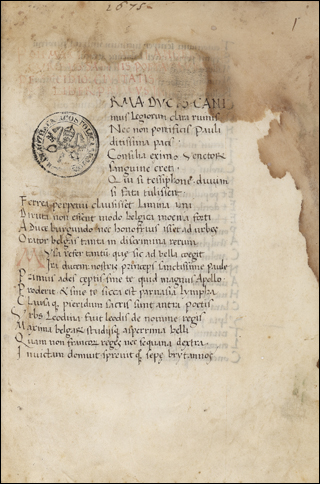 2675
1
RMA DVCIS CANI
mus Legiorum clara ruinis
Nec non pontificis Pauli
ditissima pace
Consilia
sanguine creti
si
si fata tulissent
Ferrea perpetui clausisset lamina
Diruta non essent modo belgica moenia fatis
A Duce burgundo nec honestius isset ad urbes
Orator belgas tanta in discrimina rerum
refer tantum que sic ad bella coegit
Ista ducem nostris princeps sanctissime Paule
Primus ades ceptis sine te quid magnus Apollo
Proderit & sine te sicca est parnasia lympha
Clausa pieridum sacris sunt antra poetis
Urbs Leodina fuit leodis de nomine regis
Maxima belgarum studiisque asperrima belli
Quam non francorum reges nec sequana dextra
Invictam domuit sprevit sepe brytannos